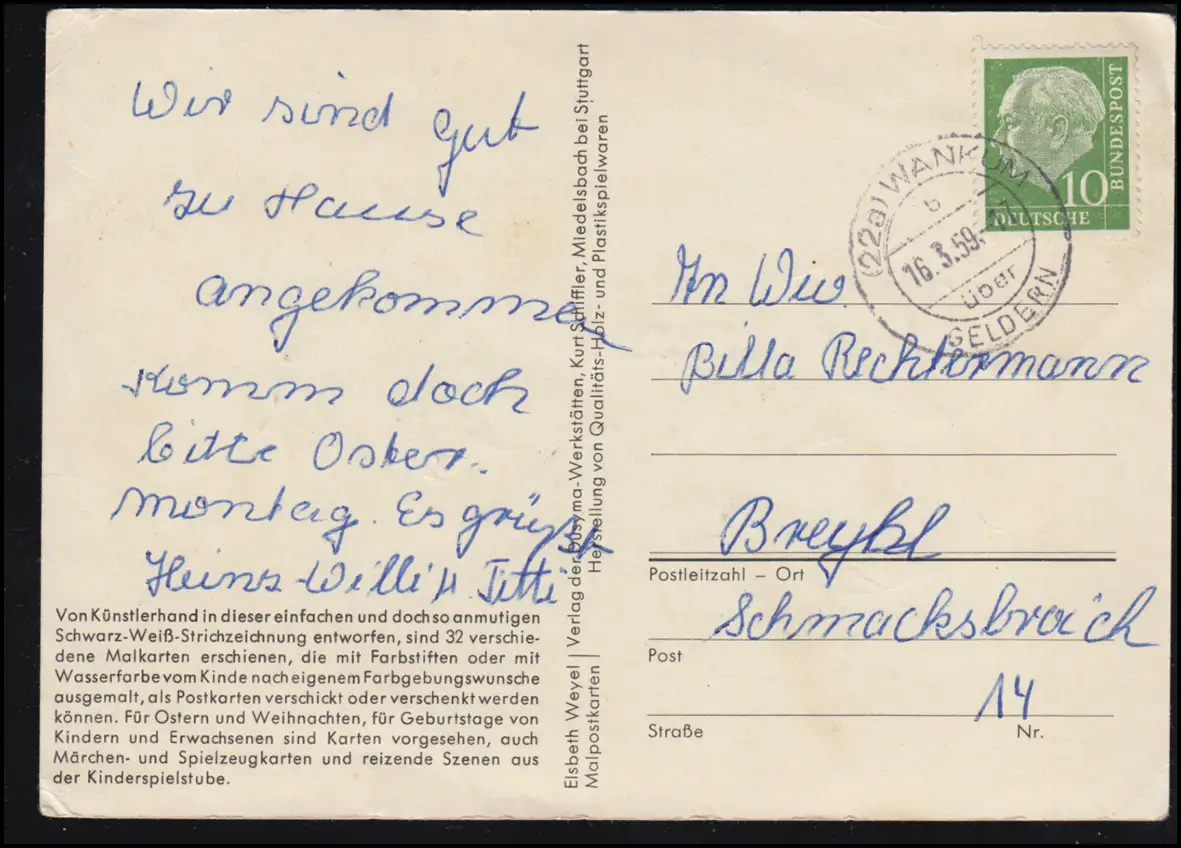 Wir sind gut
zu Hause
angekommen
Komm doch
bitte Oster.
montag. Es grüßt
Heinz-Willi u. Titti
Von Künstlerhand in dieser einfachen und doch so anmutigen
Schwarz-Weiß-Strichzeichnung entworfen, sind 32 verschie-
dene Malkarten erschienen, die mit Farbstiften oder mit
Wasserfarbe vom Kinde nach eigenem Farbgebungswunsche
ausgemalt, als Postkarten verschickt oder verschenkt werden
können. Für Ostern und Weihnachten, für Geburtstage von
Kindern und Erwachsenen sind Karten vorgesehen, auch
Märchen- und Spielzeugkarten und reizende Szenen aus
der Kinderspielstube.
Elsbeth Weyel | Verlag der Dusyma-Werkstätten, Kurt Schiffler, Miedelsbach bei Stuttgart
Malpostkarten | Herstellung von Qualitäts-Holz- und Plastikspielwaren
10
DEUTSCHE
BUNDESPOST
(22a) WANKUM
b
16.3.59.
über
GELDERN
Billa Rechtermann
Breyell
Postleitzahl – Ort
Schmacksbraich
Post
14
Straße Nr.